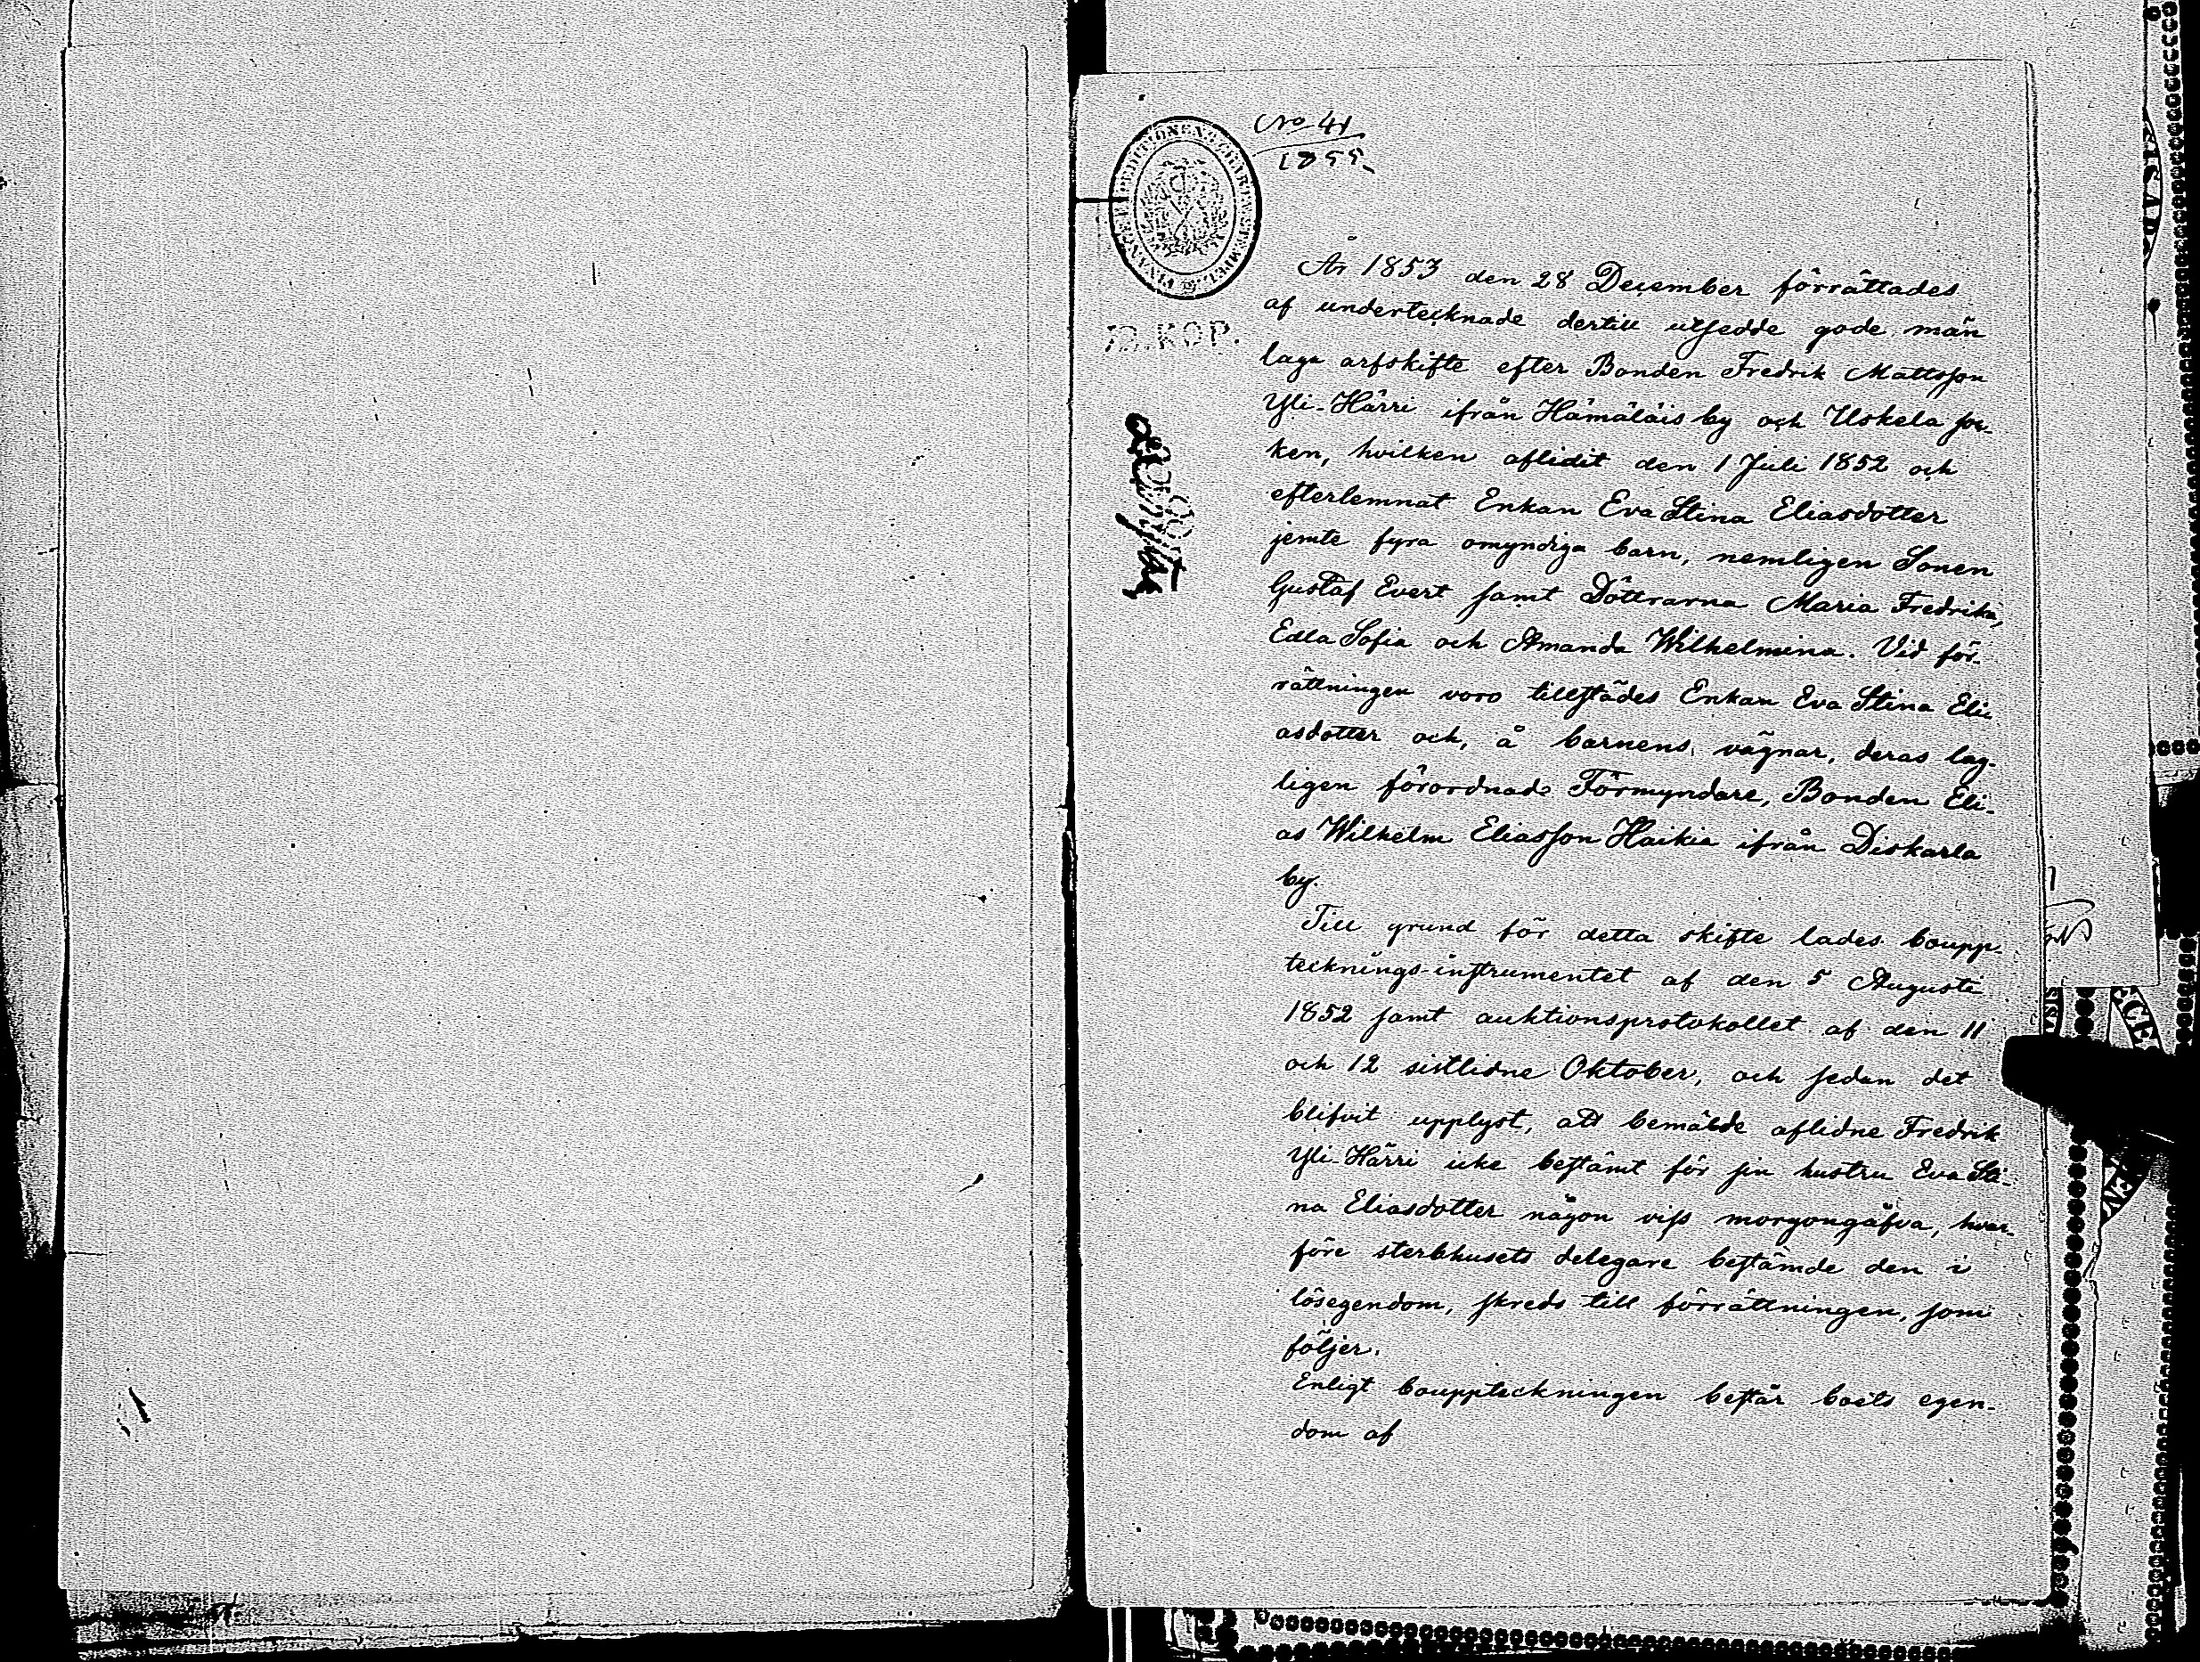 No 41
1855.
FINANCE EXPEDITIONENS CHARTÆ STEMPEL
KOP.
År 1853 den 28 December förrättades
af undertecknade dertill utsedde gode män
laga arfskifte efter Bonden Fredrik Mattsson
Yli-Härri ifrån Hämäläis by och Uskela soc-
ken, hvilken aflidit den 1 Juli 1852 och
efterlemnat Enkan Eva Stina Eliasdotter
jemte fyra omyndiga barn, nemligen Sonen
Gustaf Evert samt Döttrarna Maria Fredrika,
Edla Sofia och Amanda Wilhelmina. Vid för-
rättningen voro tillstädes Enkan Eva Stina Eli-
asdotter och, å barnens vägnar, deras lag-
ligen förordnade Förmyndare, Bonden Eli-
as Wilhelm Eliasson Haikia ifrån Diskarla
by.
Till grund för detta skifte lades boupp-
tecknings-instrumentet af den 5 Augusti
1852 samt auktionsprotokollet af den 11
och 12 sistlidne Oktober, och sedan det
blifvit upplyst, att bemälde aflidne Fredrik
Yli-Härri icke bestämt för sin hustru Eva Sti-
na Eliasdotter någon viss morgongåfva, hvar-
före sterbhusets delegare bestämde den i
lösegendom, skreds till förrättningen, som
följer.
Enligt bouppteckningen består boets egen-
dom af